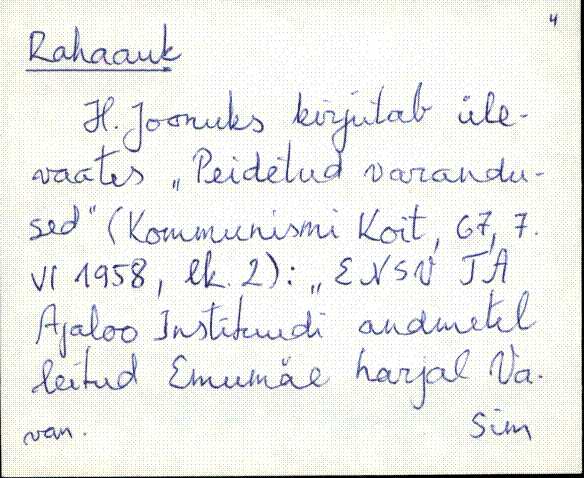 4
Rahaauk
H. Joonuks kirjutab üle-
vaates „Peidetud varandu-
sed" (Kommunismi Koit, 67, 7.
VI 1958, lk. 2): „ENSV TA
Ajaloo Instituudi andmetel
leitud Emumäe harjal Va-
van. Sim